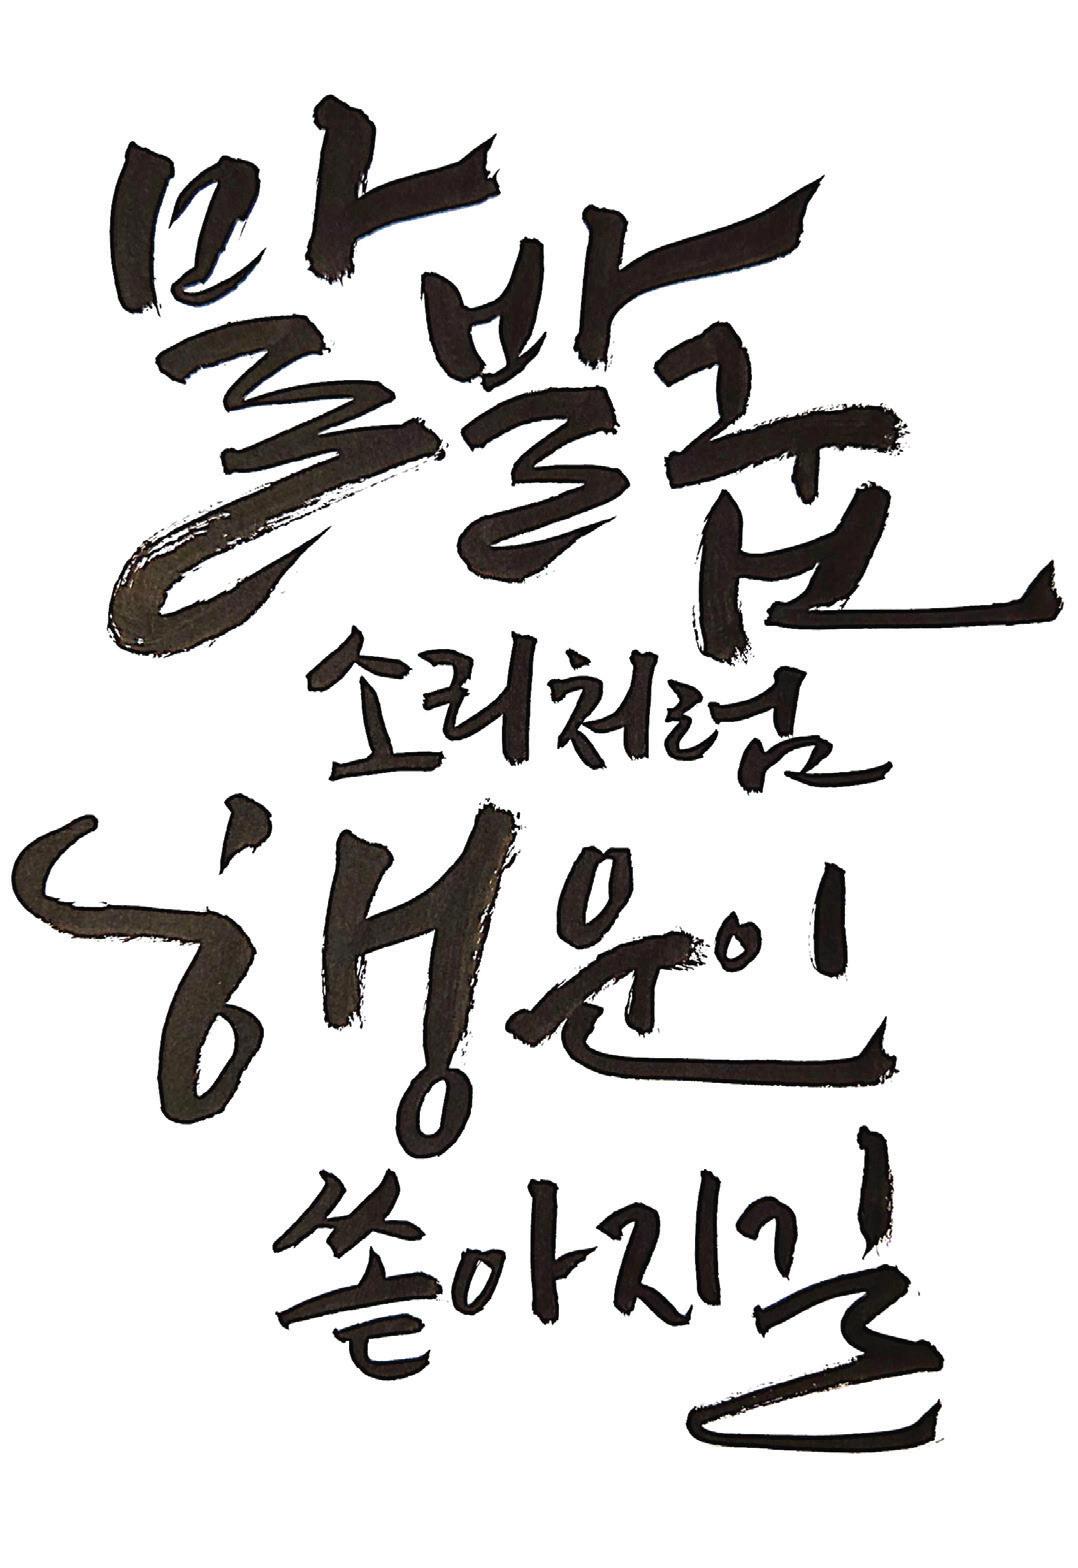 말발굽
소리처럼
행운이
쏟아지길